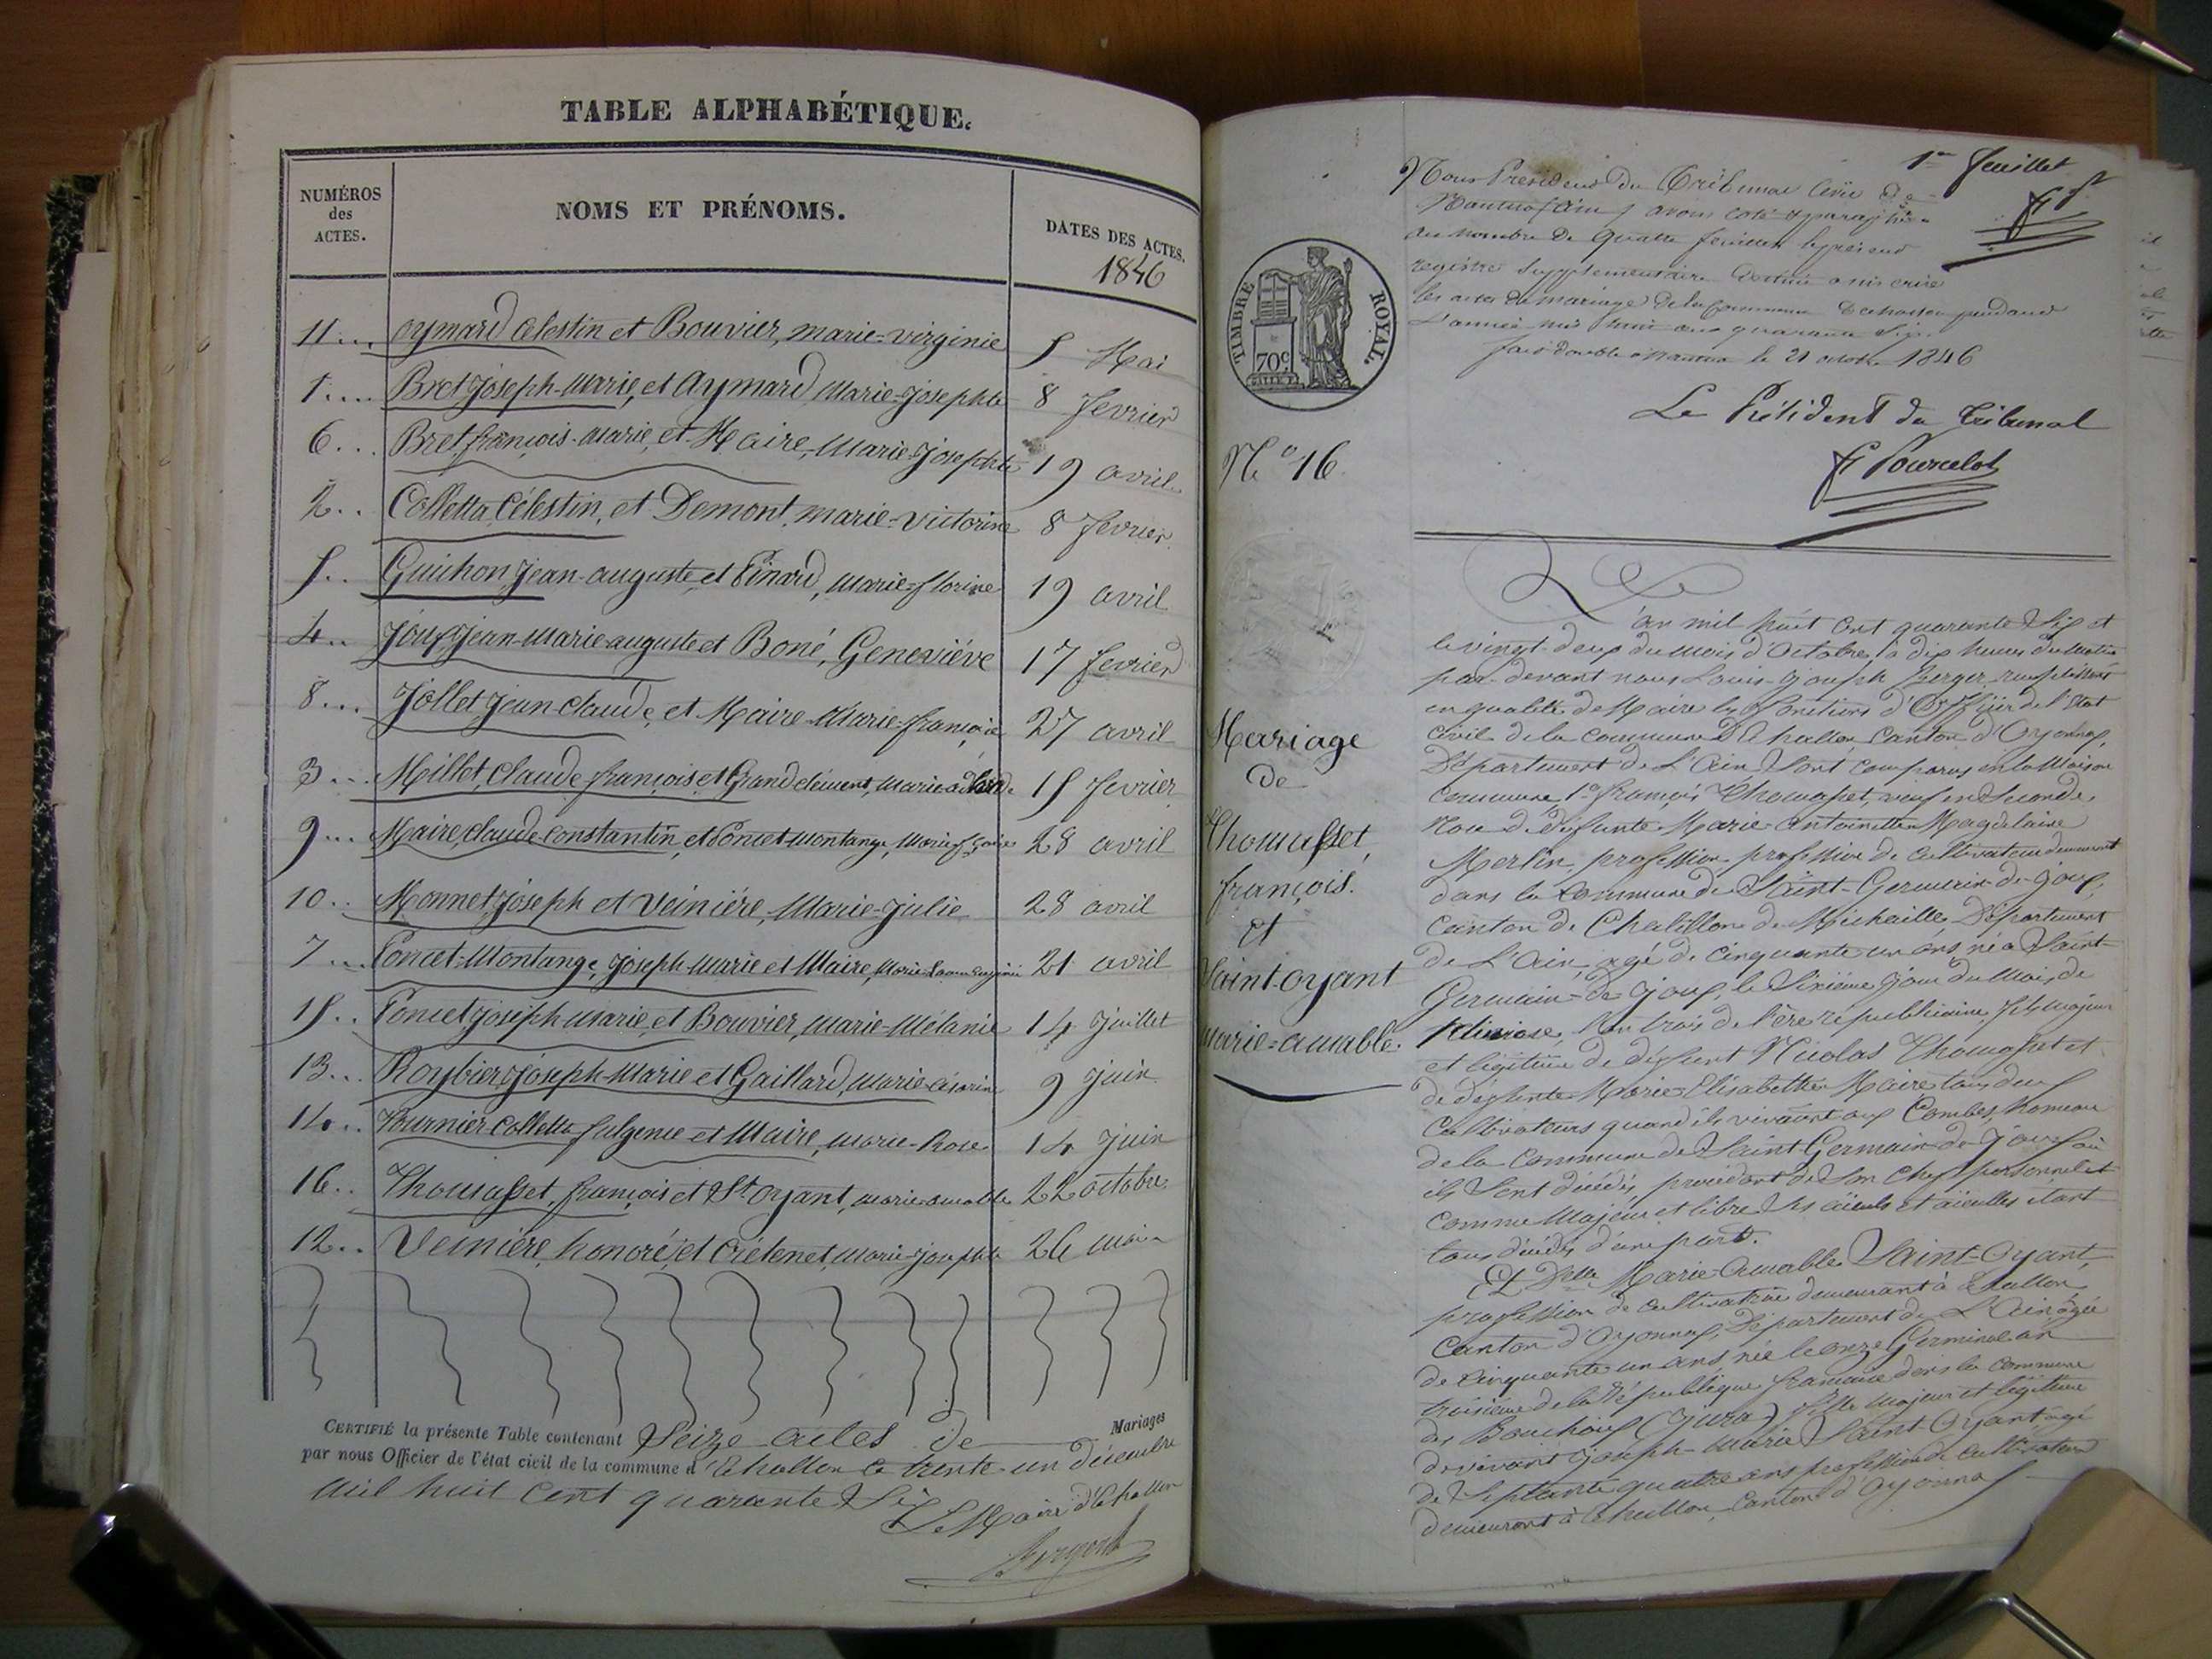 TABLE ALPHABÉTIQUE.
NUMÉROS
des
ACTES.
NOMS ET PRÉNOMS.
DATES DES ACTES.
1846
11... Oymard Célestin et Bouvier, marie-virginie 5 Mai
1.... Bret joseph-Marie, et Aymard Marie-josephte 8 fevrier
6... Bret françois-Marie, et Maire, Marie-josephte 19 avril
2.. Colletta Célestin, et Demont, marie-victorine 8 fevrier
5.. Guichon jean-auguste et Pinard, Marie-florine 19 avril
4.. Joux jean-Marie-auguste et Boné, Geneviéve 17 fevrier
8... Jollet jean-Claude, et Maire Marie-françoise 27 avril
3... Millet, Claude françois et Grandclément, Marie 15 fevrier
9... Maire, Claude-Constantin, et Poncet-Montange, Marie 28 avril
10.. Monnet, joseph et Veiniére, Marie-Julie 28 avril
7... Poncet-Montange, joseph-Marie et Maire, Marie 21 avril
15.. Poncet joseph Marie, et Bouvier, Marie-Mélanie 14 juillet
13... Roybier joseph-Marie et Gaillard, Marie-césarine 9 juin
14.. Tournier-Colletta fulgence et Maire, Marie-Rose 14 juin
16.. Thomasset, françois et St Oyant, Marie-amable 22 octobre
12.. Veiniére, honoré, et Crétenet, Marie-josephte 26 mai
CERTIFIÉ la présente Table contenant Seize actes de Mariages
par nous Officier de l'état civil de la commune d'Echallon ce trente-un décembre
mil huit cent quarante Six
Le Maire d'Echallon
1er feuillet
Nous Président du Tribunal Civil de
Nantua (Ain) avons coté & paraphé
au nombre de quatre feuillets le présent
registre supplémentaire destiné a inscrire
les actes de mariage de la Commune d'Echallon pendant
L'année mil huit cent quarante Six.
fait double à Nantua le 21 octobre 1846
Le Président du Tribunal
TIMBRE ROYAL.
70c
N° 16.
Mariage
de
Thomasset,
françois.
Et
Saint-oyant
Marie-amable.
L'an mil huit cent quarante Six et
le vingt-deux du mois d'Octobre, à dix heures du matin
par-devant nous Louis-Joseph Berger remplissant
en qualité de Maire les fonctions d'Officier de l'Etat
civil de la commune d'Echallon, Canton d'Oyonnax,
Département de L'Ain, Sont comparus en la Maison
Commune 1° françois Thomasset, veuf en Seconde
Noce de défunte Marie Antoinette Magdelaine
Merlin, profession profession de cultivateur demeurant
dans la Commune de Saint-Germain-de-Joux,
Canton de Chatillon de Michaille Département
de L'Ain, agé de Cinquante un ans, né a Saint-
Germain-de Joux, le Sixiéme jour du Mois de
Pluviose, l'an trois de l'ére républicaine, fils majeur
et légitime de défunt Nicolas Thomasset et
de défunte Marie Elisabethe Maire tous deux
Cultivateurs quand ils vivaient aux Combes, hameau
de la Commune de Saint-Germain-de Joux où
ils Sont décédés, procédant de Son chef personnel et
comme Majeur et libre Ses aïeuls et aïeulles étant
tous décédés d'une part.
Et Delle Marie-Amable Saint-Oyant,
profession de cultivatrice demeurant à Echallon
Canton d'Oyonnax, Département de L'Ain, agée
de Cinquante un ans, née le onze Germinal an
troisiéme de la République française dans la Commune
des Bouchoux (Jura), fille majeur et légitime
de vivant Joseph-Marie Saint-Oyant, agé
de Septante quatre ans profession de cultivateur
demeurant à Echallon, Canton d'Oyonnax